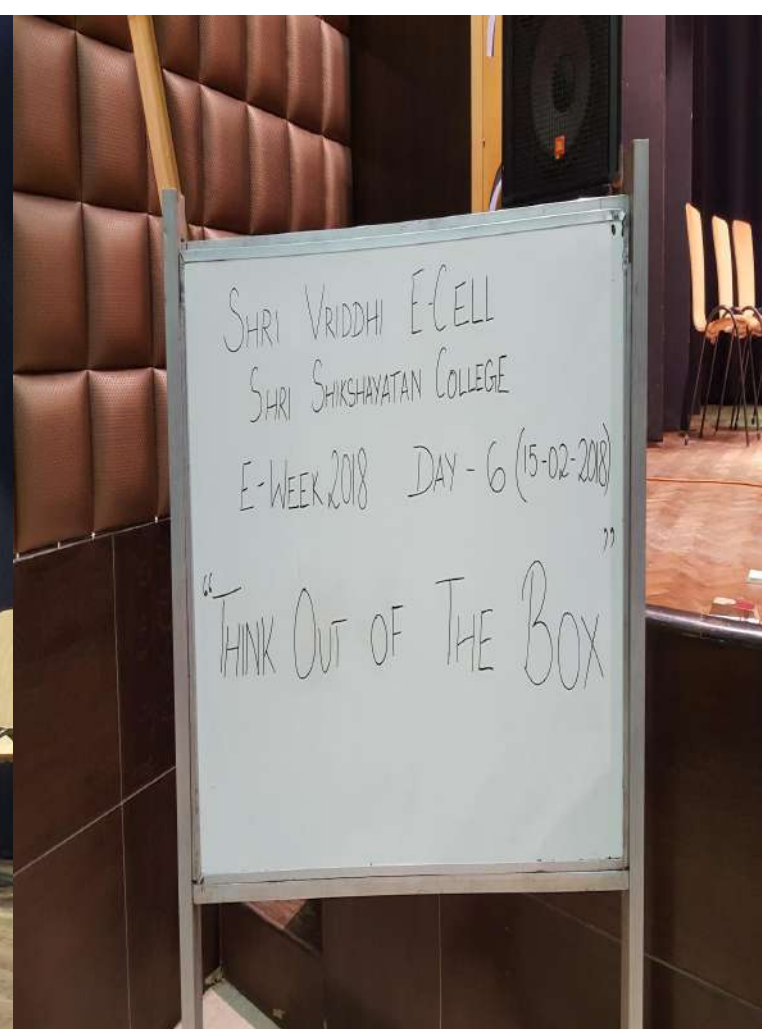 SHRI VRIDDHI E-CELL
SHRI SHIKSHAYATAN COLLEGE
E-WEEK 2018 DAY - 6 (15-02-2018)
"THINK OUT OF THE BOX"